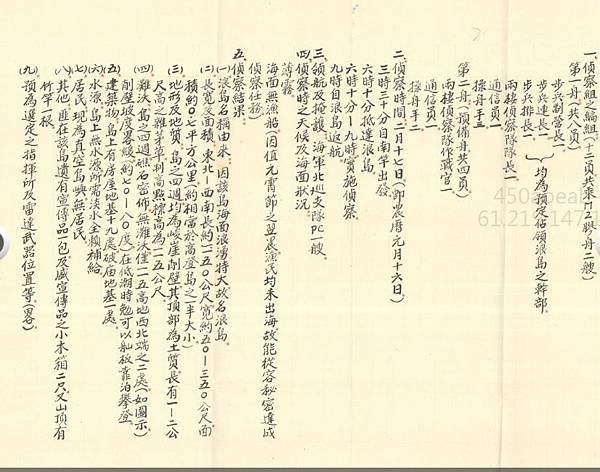 一、偵察組之編組(十二員共乘M2膠舟二艘)
第一舟(共八員)
步兵副營長1
步兵連長1
步兵排長1
均為預定佔領浪島之幹部
兩棲偵察隊隊長一
通信員1
操舟手三
第二舟(預備舟共四員)
兩棲偵察隊作戰官一
通信員一
操舟手二
二、偵察時間二月十七日(即農曆元月十六日)
三時三十分自南竿出發
六時十分抵達浪島
六時十分-九時實施偵察
九時自浪島返航
三、領航及掩護、海軍北巡支隊PC一艘
四、偵察時之天候及海面狀況
薄霧
海面無漁船(因值元宵節之翌晨漁民均未出海故能從容秘密達成
偵察任務)
五、偵察結果
(一)浪島名稱由來、因該島海面浪湧特大故名浪島
(二)長寬及面積、東北-西南長約一二五〇公尺寬約五〇-三五〇公尺面
積約〇、〇七平方公里(約相當於高登島之一半大小)
(三)地形及地質、島之四週均為峻崖削壁其頂部為土質長有一-二公
尺高之雜茅草制高點標高為一一五公尺
(四)灘沃、島之四週礁石密佈無灘沃僅一一五高地西北端之二處(如圖示)
削壁坡度署緩(約七〇-八〇度)在低潮時勉可以舢舨靠泊攀登
(五)建築物、島上有房屋地基十九處破庙地基一處
(六)水源、島上無水源所需淡水全賴補給
(七)居民、現為真空島嶼無居民
(八)其他、匪在該島遺有宣傳品一包及盛宣傳品之小木箱二只又山頂有
竹竿一根
(九)預為選定之指揮所及雷達武器位置等(畧)